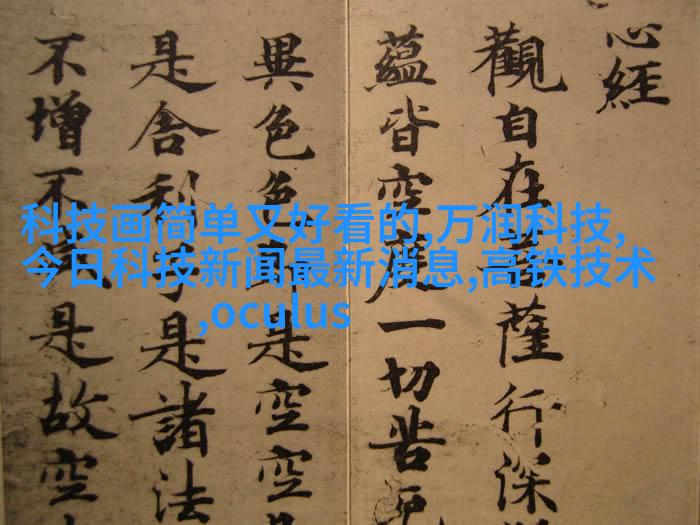 心經
觀自在菩薩行深
蘊皆空度一切苦厄
異色色即是空空
是舍利子是諸法
不增不減是故空
科技画简单又好看的,万润科技,
今日科技新闻最新消息,高铁技术
,oculus